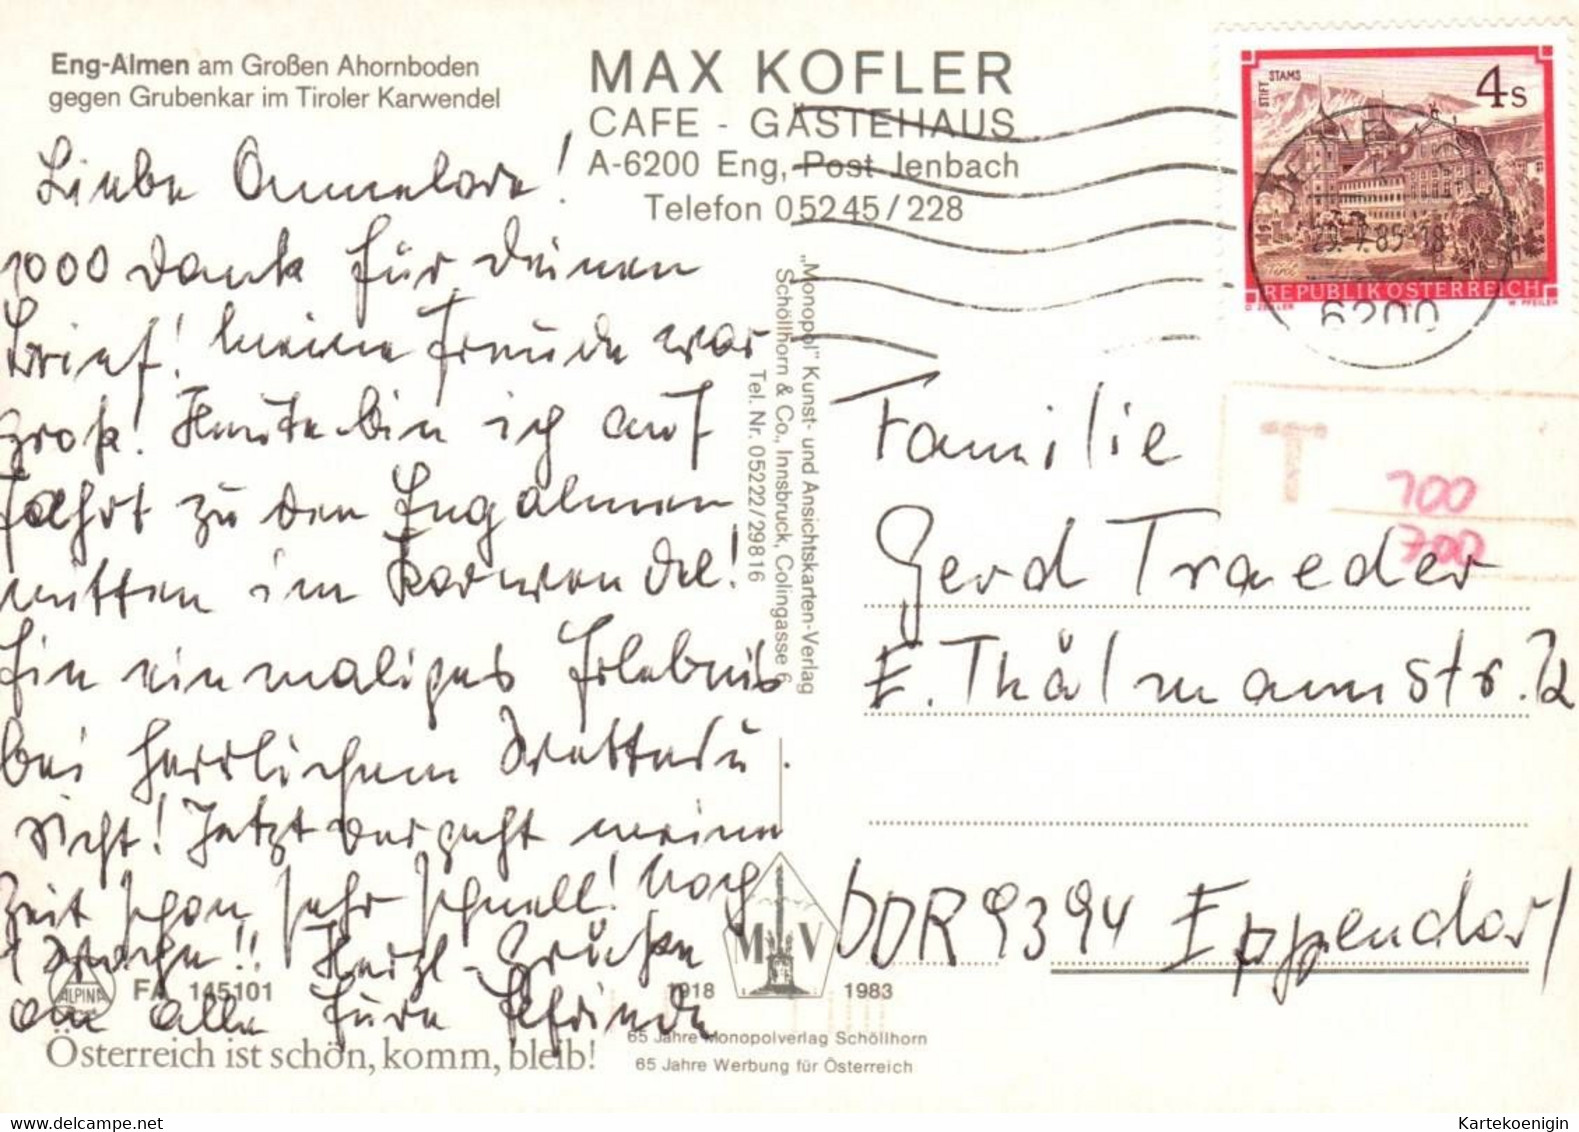 Eng-Almen am Großen Ahornboden
gegen Grubenkar im Tiroler Karwendel
MAX KOFLER
CAFE - GÄSTEHAUS
A-6200 Eng, Post Jenbach
Telefon 05245/228
STIFT STAMS
4s
Tirol
REPUBLIK ÖSTERREICH
O. ZEILLER W. PFEILER
29.7.85-18
6200
Liebe Annelore!
1000 Dank für Deinen
Brief! Meine Freude war
groß! Heute bin ich auf
Fahrt zu den Engalmen
mitten im Karwendel!
Ein einmaliges Erlebnis
bei herrlichem Wetter u.
Sicht! Jetzt vergeht meine
Zeit schon sehr schnell! Noch
1 Woche!! Herzl. Grüße
an alle Eure
"Monopol" Kunst- und Ansichtskarten-Verlag
Schöllhorn & Co., Innsbruck, Colingasse 6
Tel. Nr. 05222/29816
T
100
700
Familie
Gerd Traeder
E. Thälmannstr.
DDR 9394 Eppendorf
ALPINA
FA 145101
M V
1918 1983
65 Jahre Monopolverlag Schöllhorn
65 Jahre Werbung für Österreich
Österreich ist schön, komm, bleib!
Kartekoenigin